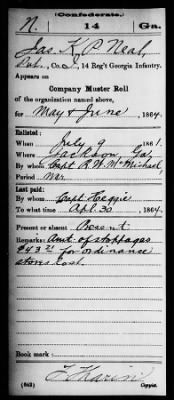 Confederate.
N. 14 Ga.
Jas. K. P. Neal
Pvt., Co. I, 14 Reg't Georgia Infantry.
Appears on
Company Muster Roll
of the organization named above,
for May & June, 1864.
Enlisted:
When July 9, 1861.
Where Jackson, Ga.
By whom Capt R. W. McMichael
Period War
Last paid:
By whom Capt Heggie
To what time Apl. 30, 1864.
Present or absent Present
Remarks: Amt. of stoppages
for ordinance
stores lost.
Book mark:
(642) Copyist.